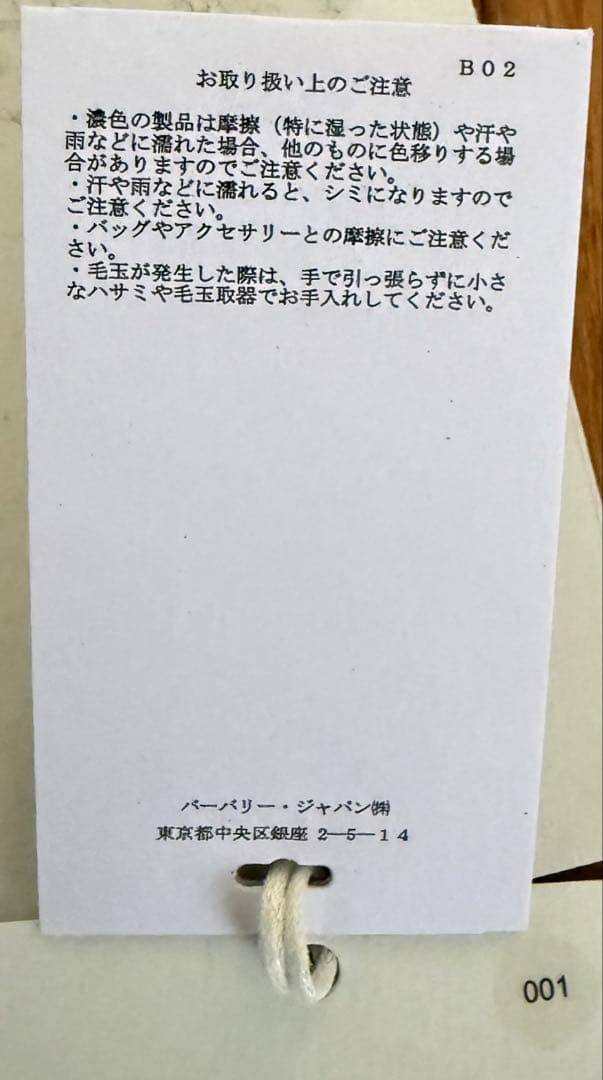 B02
お取り扱い上のご注意
・濃色の製品は摩擦（特に湿った状態）や汗や
雨などに濡れた場合、他のものに色移りする場
合がありますのでご注意ください。
・汗や雨などに濡れると、シミになりますので
ご注意ください。
・バッグやアクセサリーとの摩擦にご注意くだ
さい。
・毛玉が発生した際は、手で引っ張らずに小さ
なハサミや毛玉取器でお手入れしてください。
バーバリー・ジャパン㈱
東京都中央区銀座 2―5―14
001